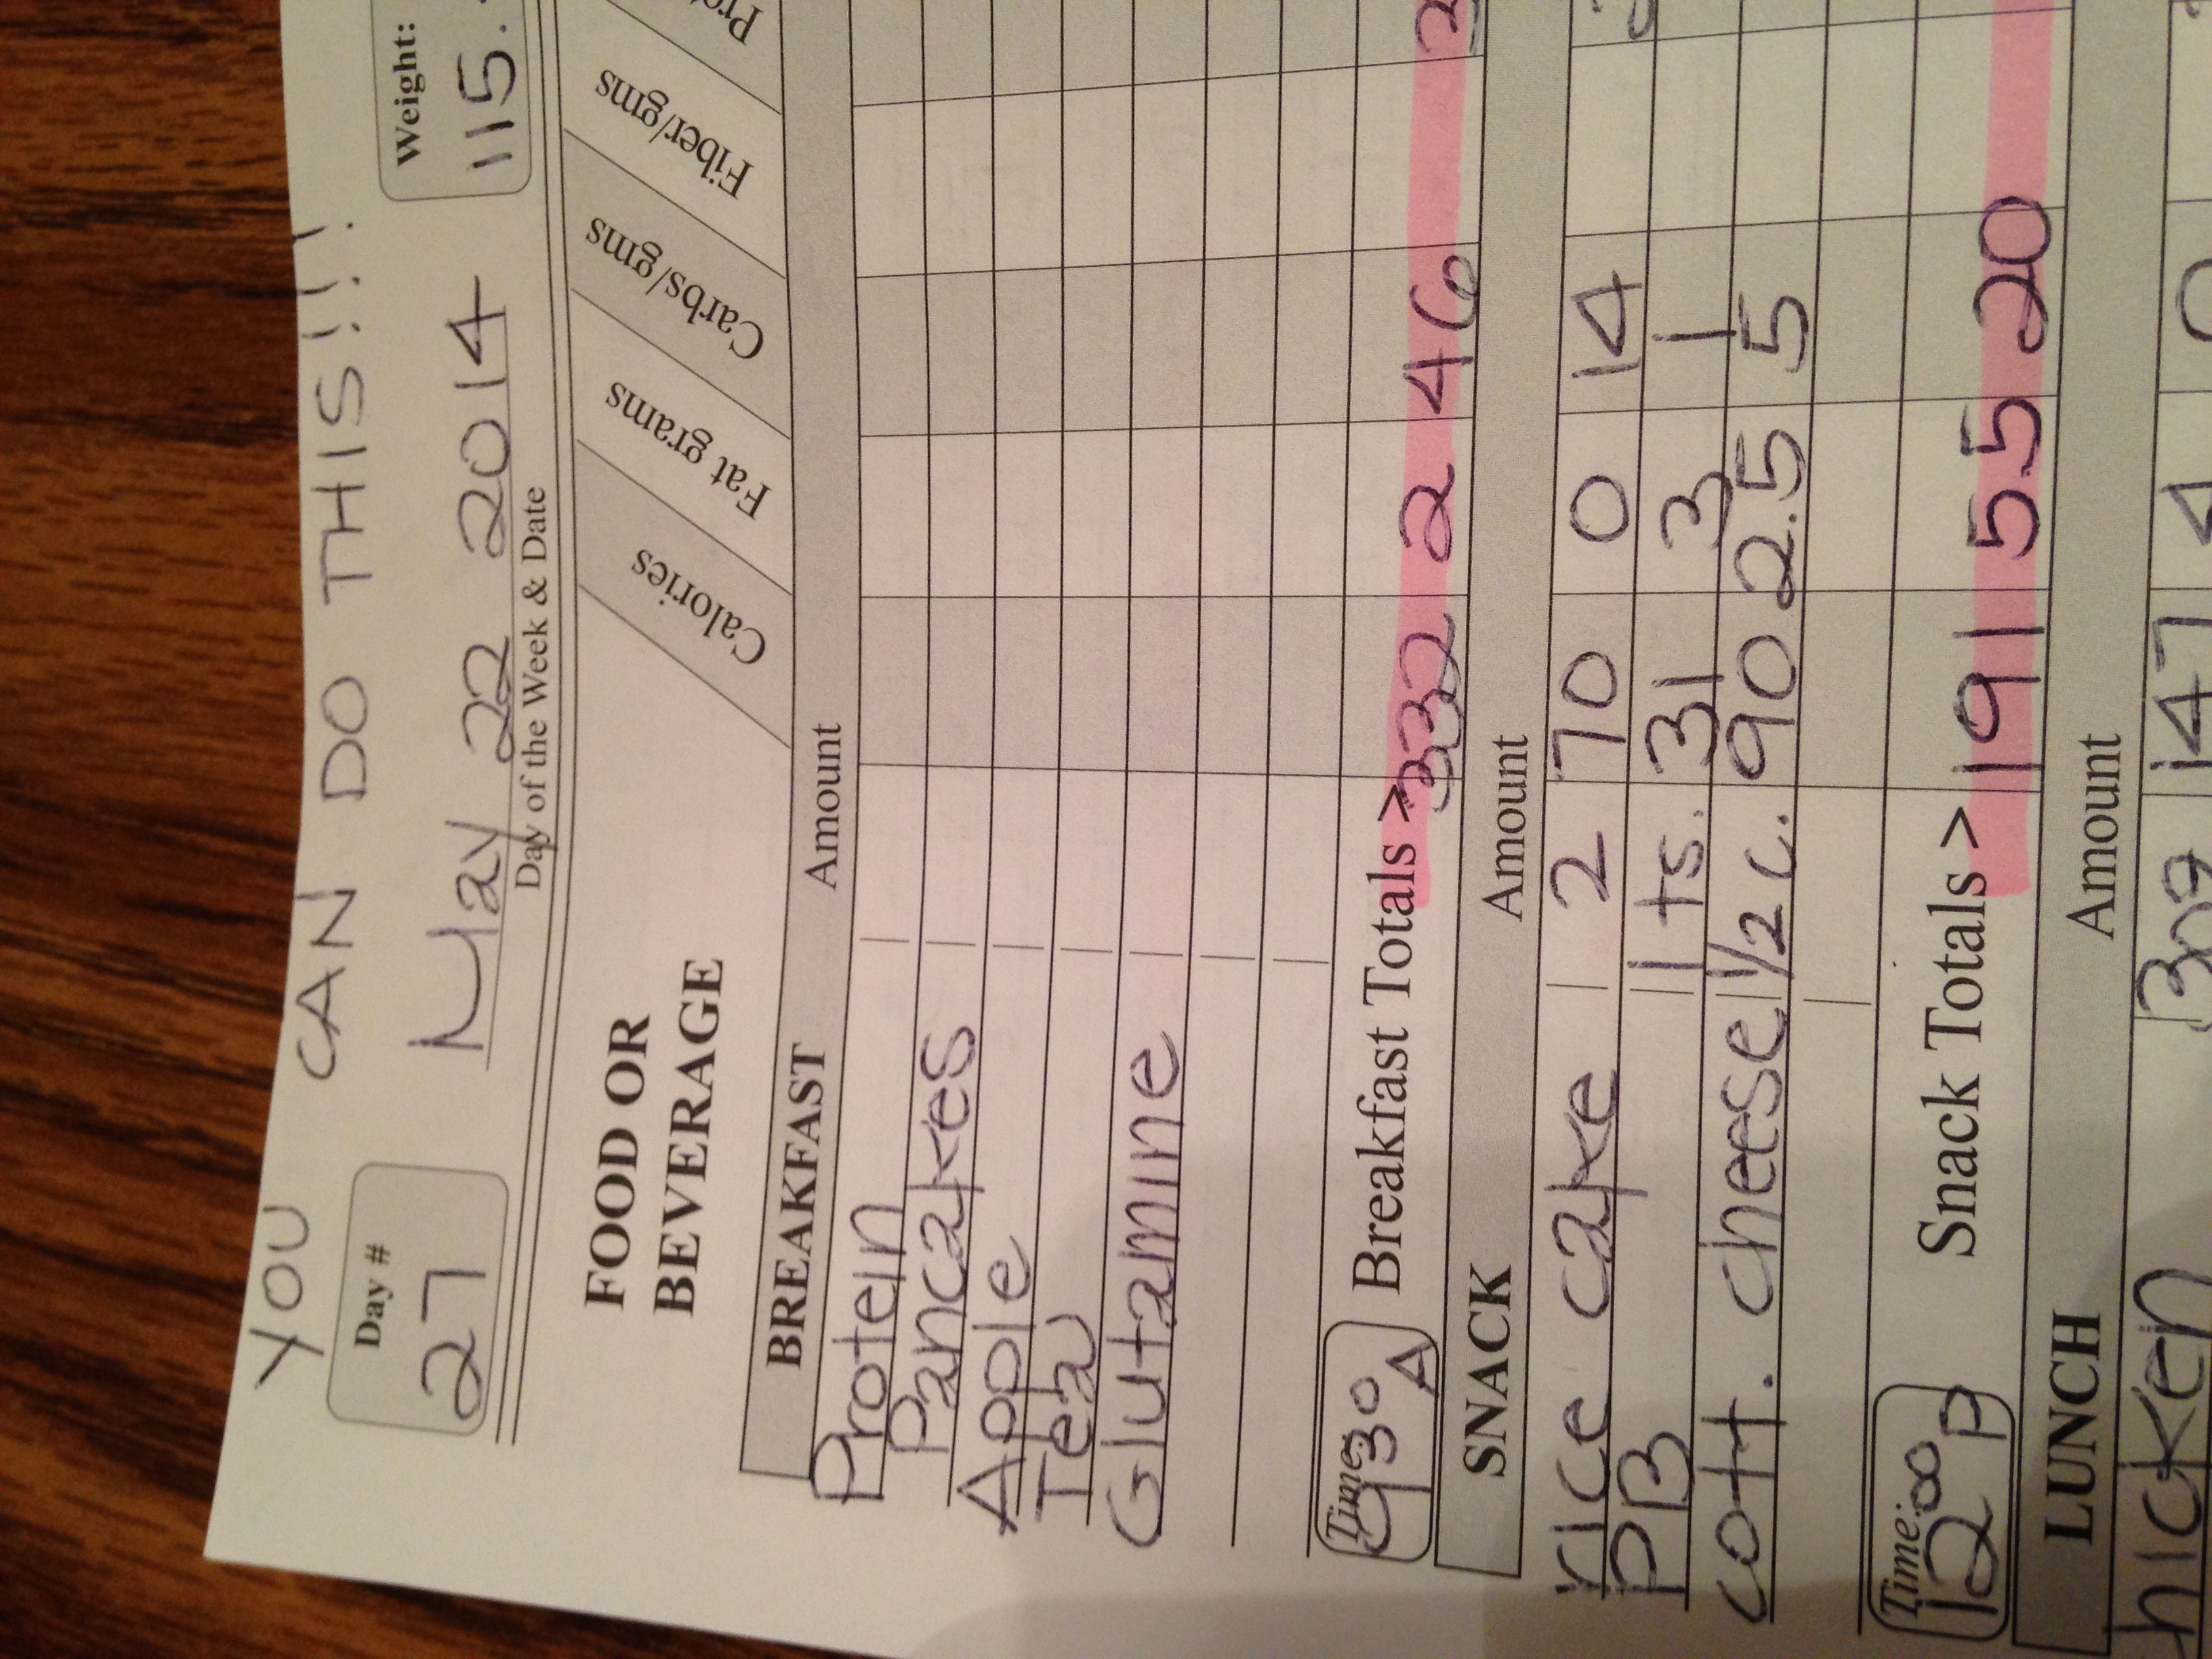 YOU CAN DO THIS!!!
Day # Weight:
27 May 22 2014 115.
Day of the Week & Date
FOOD OR
BEVERAGE
Calories Fat grams Carbs/gms Fiber/gms
BREAKFAST Amount
Protein
Pancakes
Apple
Tea
Glutamine
Time: 930 A Breakfast Totals > 332 2 46
SNACK Amount
rice cake 2 70 0 14
PB 1 ts. 31 3 1
cott. cheese 1/2 c. 90 2.5 5
Time: 12:00 P Snack Totals > 191 5.5 20
LUNCH Amount
147